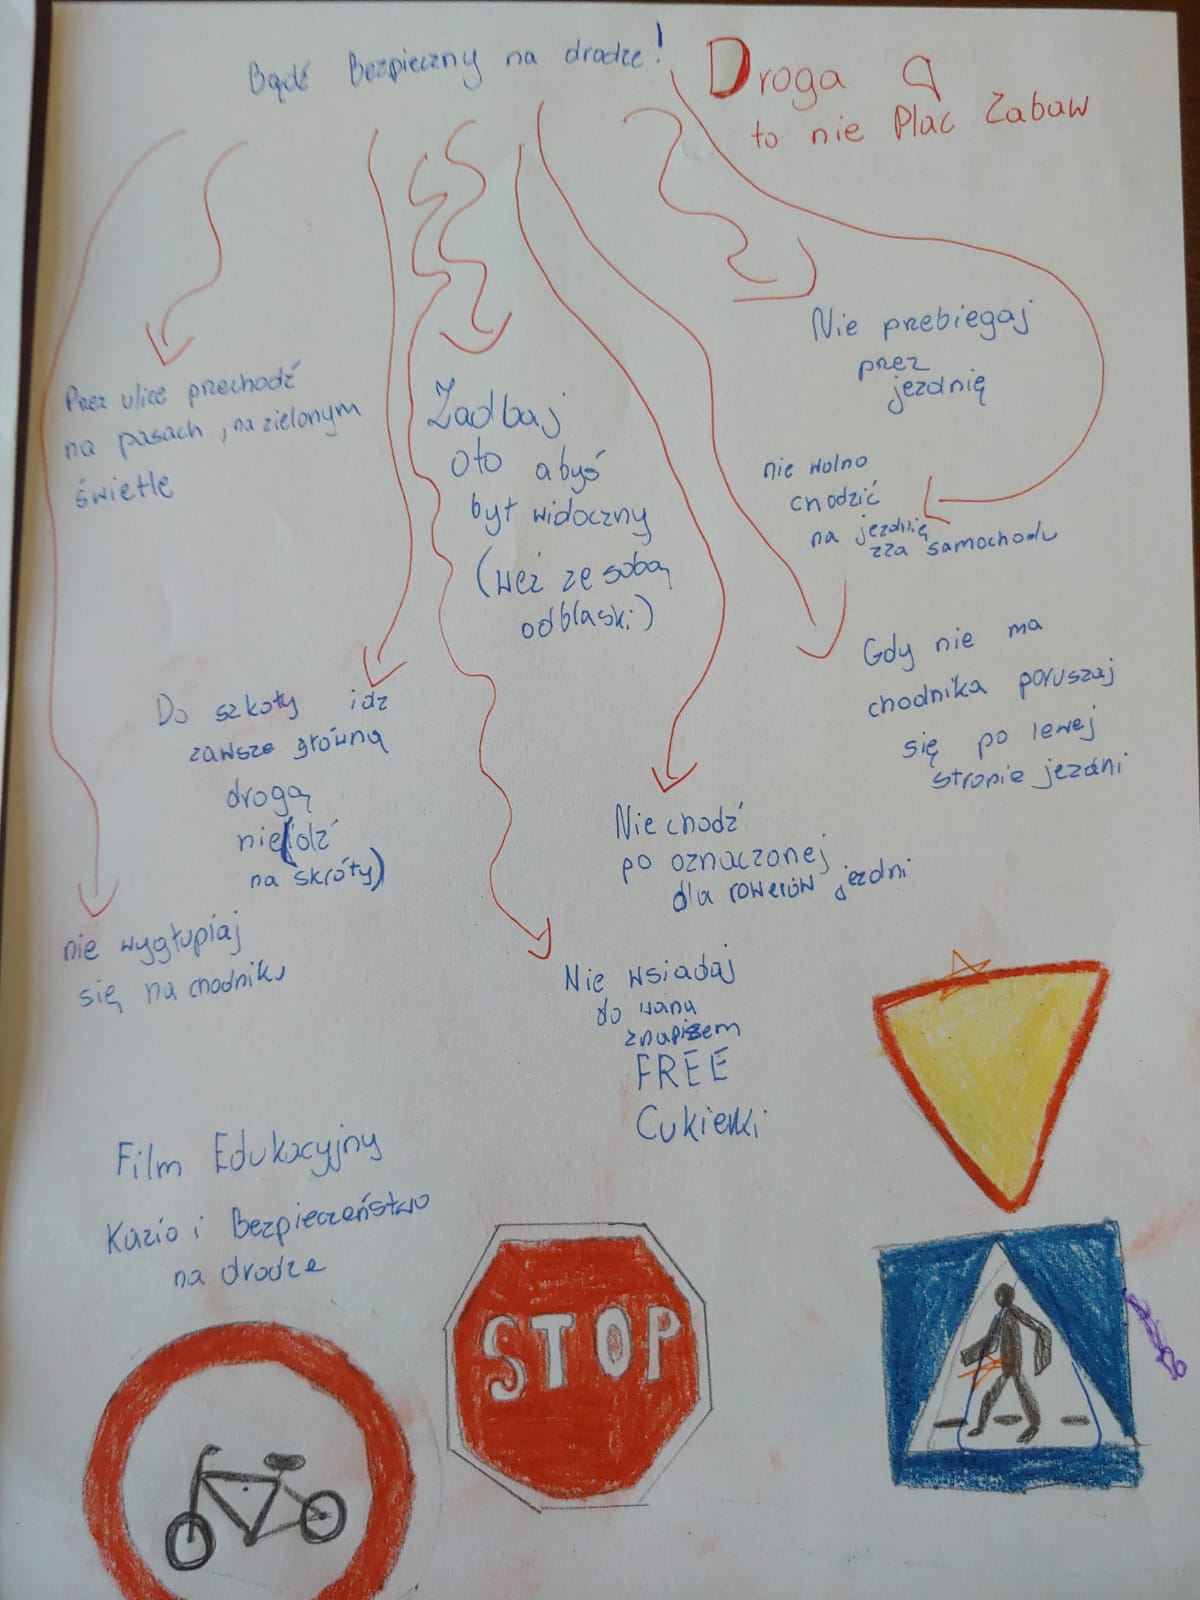 Bądź Bezpieczny na drodze!
Droga
to nie Plac Zabaw
Prez ulice prechodź
na pasach, na zielonym
świetle
Zadbaj
oto abyś
był widoczny
(weź ze sobą
odblaski)
Nie prebiegaj
prez
jezdnię
nie wolno
chodzić
na jezdnię
zza samochodu
Gdy nie ma
chodnika poruszaj
się po lewej
stronie jezdni
Do szkoły idz
zawsze główną
drogą
nie(idź
na skróty)
Nie chodź
po oznaczonej
dla rowerów jezdni
nie wygłupiaj
się na chodniku
Nie wsiadaj
do vana
znapisem
FREE
Cukierki
Film Edukacyjny
Kazio i Bezpieczeństwo
na drodze
STOP